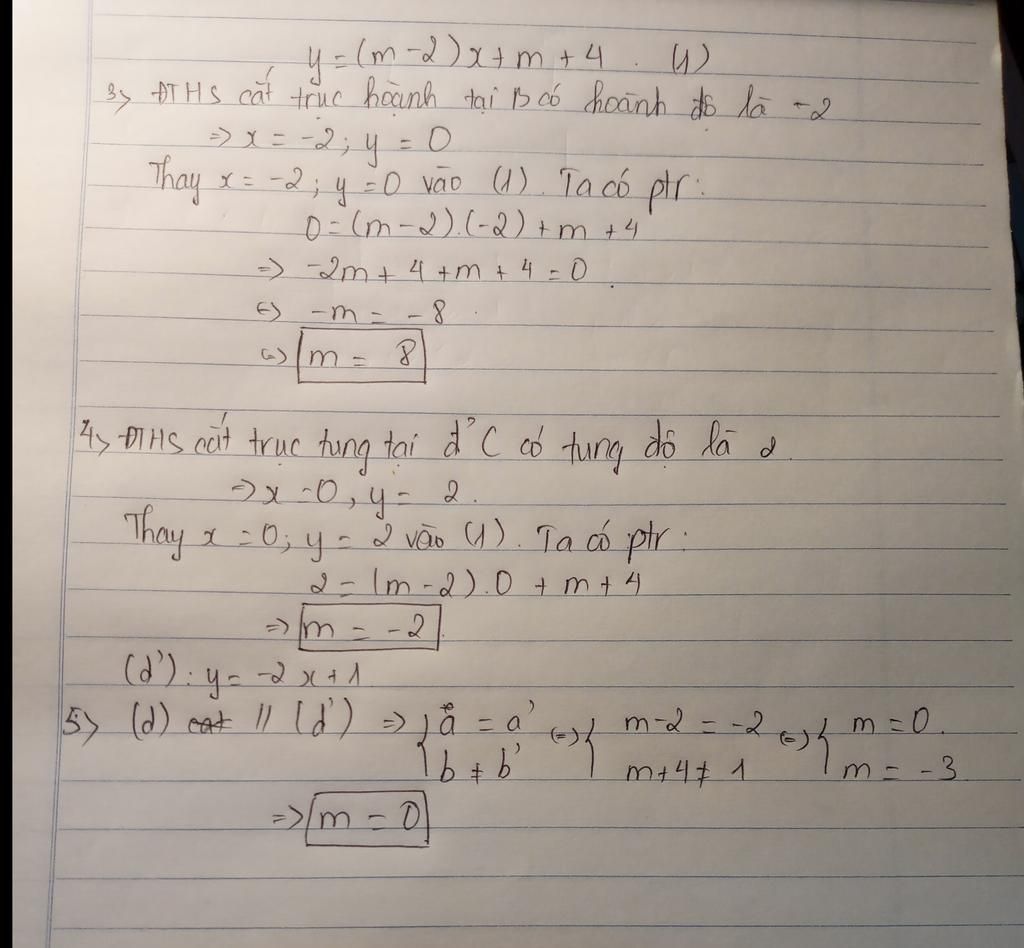 y = (m-2)x + m + 4 . (1)
3> ĐTHS cắt trục hoành tại B có hoành độ là -2
=> x = -2; y = 0
Thay x = -2; y = 0 vào (1). Ta có ptr:
0 = (m-2).(-2) + m + 4
=> -2m + 4 + m + 4 = 0
<=> -m = -8
<=> m = 8
4> ĐTHS cắt trục tung tại đ' C có tung độ là 2.
=> x = 0, y = 2.
Thay x = 0; y = 2 vào (1). Ta có ptr:
2 = (m-2).0 + m + 4
=> m = -2.
(d'): y = -2x + 1
5> (d) cắt // (d') => { a = a' <=> { m-2 = -2 <=> { m = 0.
b ≠ b' m+4 ≠ 1 m = -3
=> m = 0